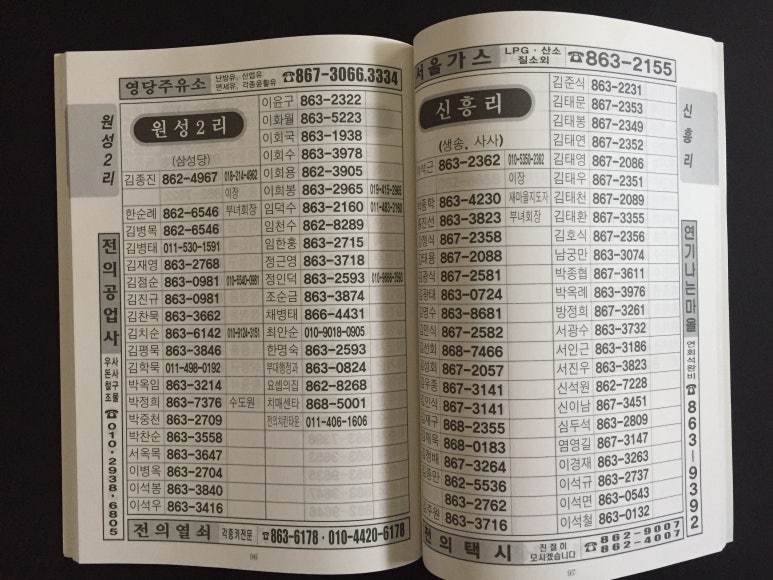 영당주유소 난방유, 산업유 면세유, 각종윤활유 ☎867-3066.3334
원성2리
원성2리
(삼성당)
김종진 862-4967 018-214-4962
이장
한순례 862-6546 부녀회장
김병목 862-6546
김병태 011-530-1591
김재영 863-2768
김점순 863-0981 010-5540-0981
김진규 863-0981
김찬묵 863-3662
김치순 863-6142 010-9124-3151
김평묵 863-3846
김학묵 011-498-0192
박옥임 863-3214
박정희 863-7376 수도원
박중천 863-2709
박찬순 863-3558
서옥목 863-3647
이병옥 863-2704
이석봉 863-3840
이석우 863-3416
이윤구 863-2322
이화월 863-5223
이회국 863-1938
이회수 863-3978
이회용 862-3905
이희봉 863-2965 019-415-2965
임덕수 863-2160 011-483-2160
임천수 862-8289
임한홍 863-2715
정근영 863-3718
정인덕 863-2593
조순금 863-3874
채병태 866-4431
최안순 010-9018-0905
한명숙 863-2593
부대행정과 863-0824
요셉의집 862-8268
치매센타 868-5001
전의치킨타운 011-406-1606
전의공업사
우사
돈사
철구
조물
☎010·2938·6805
전의열쇠 각종키전문 ☎863-6178·010-4420-6178
96
서울가스 LPG·산소 질소외 ☎863-2155
신흥리
(생송, 사사)
863-2362 010-5350-2362
이장
863-4230 새마을지도자
863-3823 부녀회장
867-2358
867-2088
867-2581
863-0724
863-8681
867-2582
868-7466
867-2057
867-3141
867-3141
868-2355
868-0183
867-3264
862-5536
863-2762
863-3716
김준식 863-2231
김태문 867-2353
김태봉 867-2349
김태연 867-2352
김태영 867-2086
김태우 867-2351
김태천 867-2089
김태환 867-3355
김호식 867-2356
남궁만 863-3074
박종협 867-3611
박옥례 863-3976
방정희 867-3261
서광수 863-3732
서인근 863-3186
서진우 863-3823
신석원 862-7228
신이남 867-3451
심두석 863-2809
염영길 867-3147
이경재 863-3263
이석규 863-2737
이석면 863-0543
이석철 863-0132
신흥리
연기나는마을
연회석완비
☎863-9392
전의택시 친절히 모시겠습니다 ☎862-9007 862-4007
97